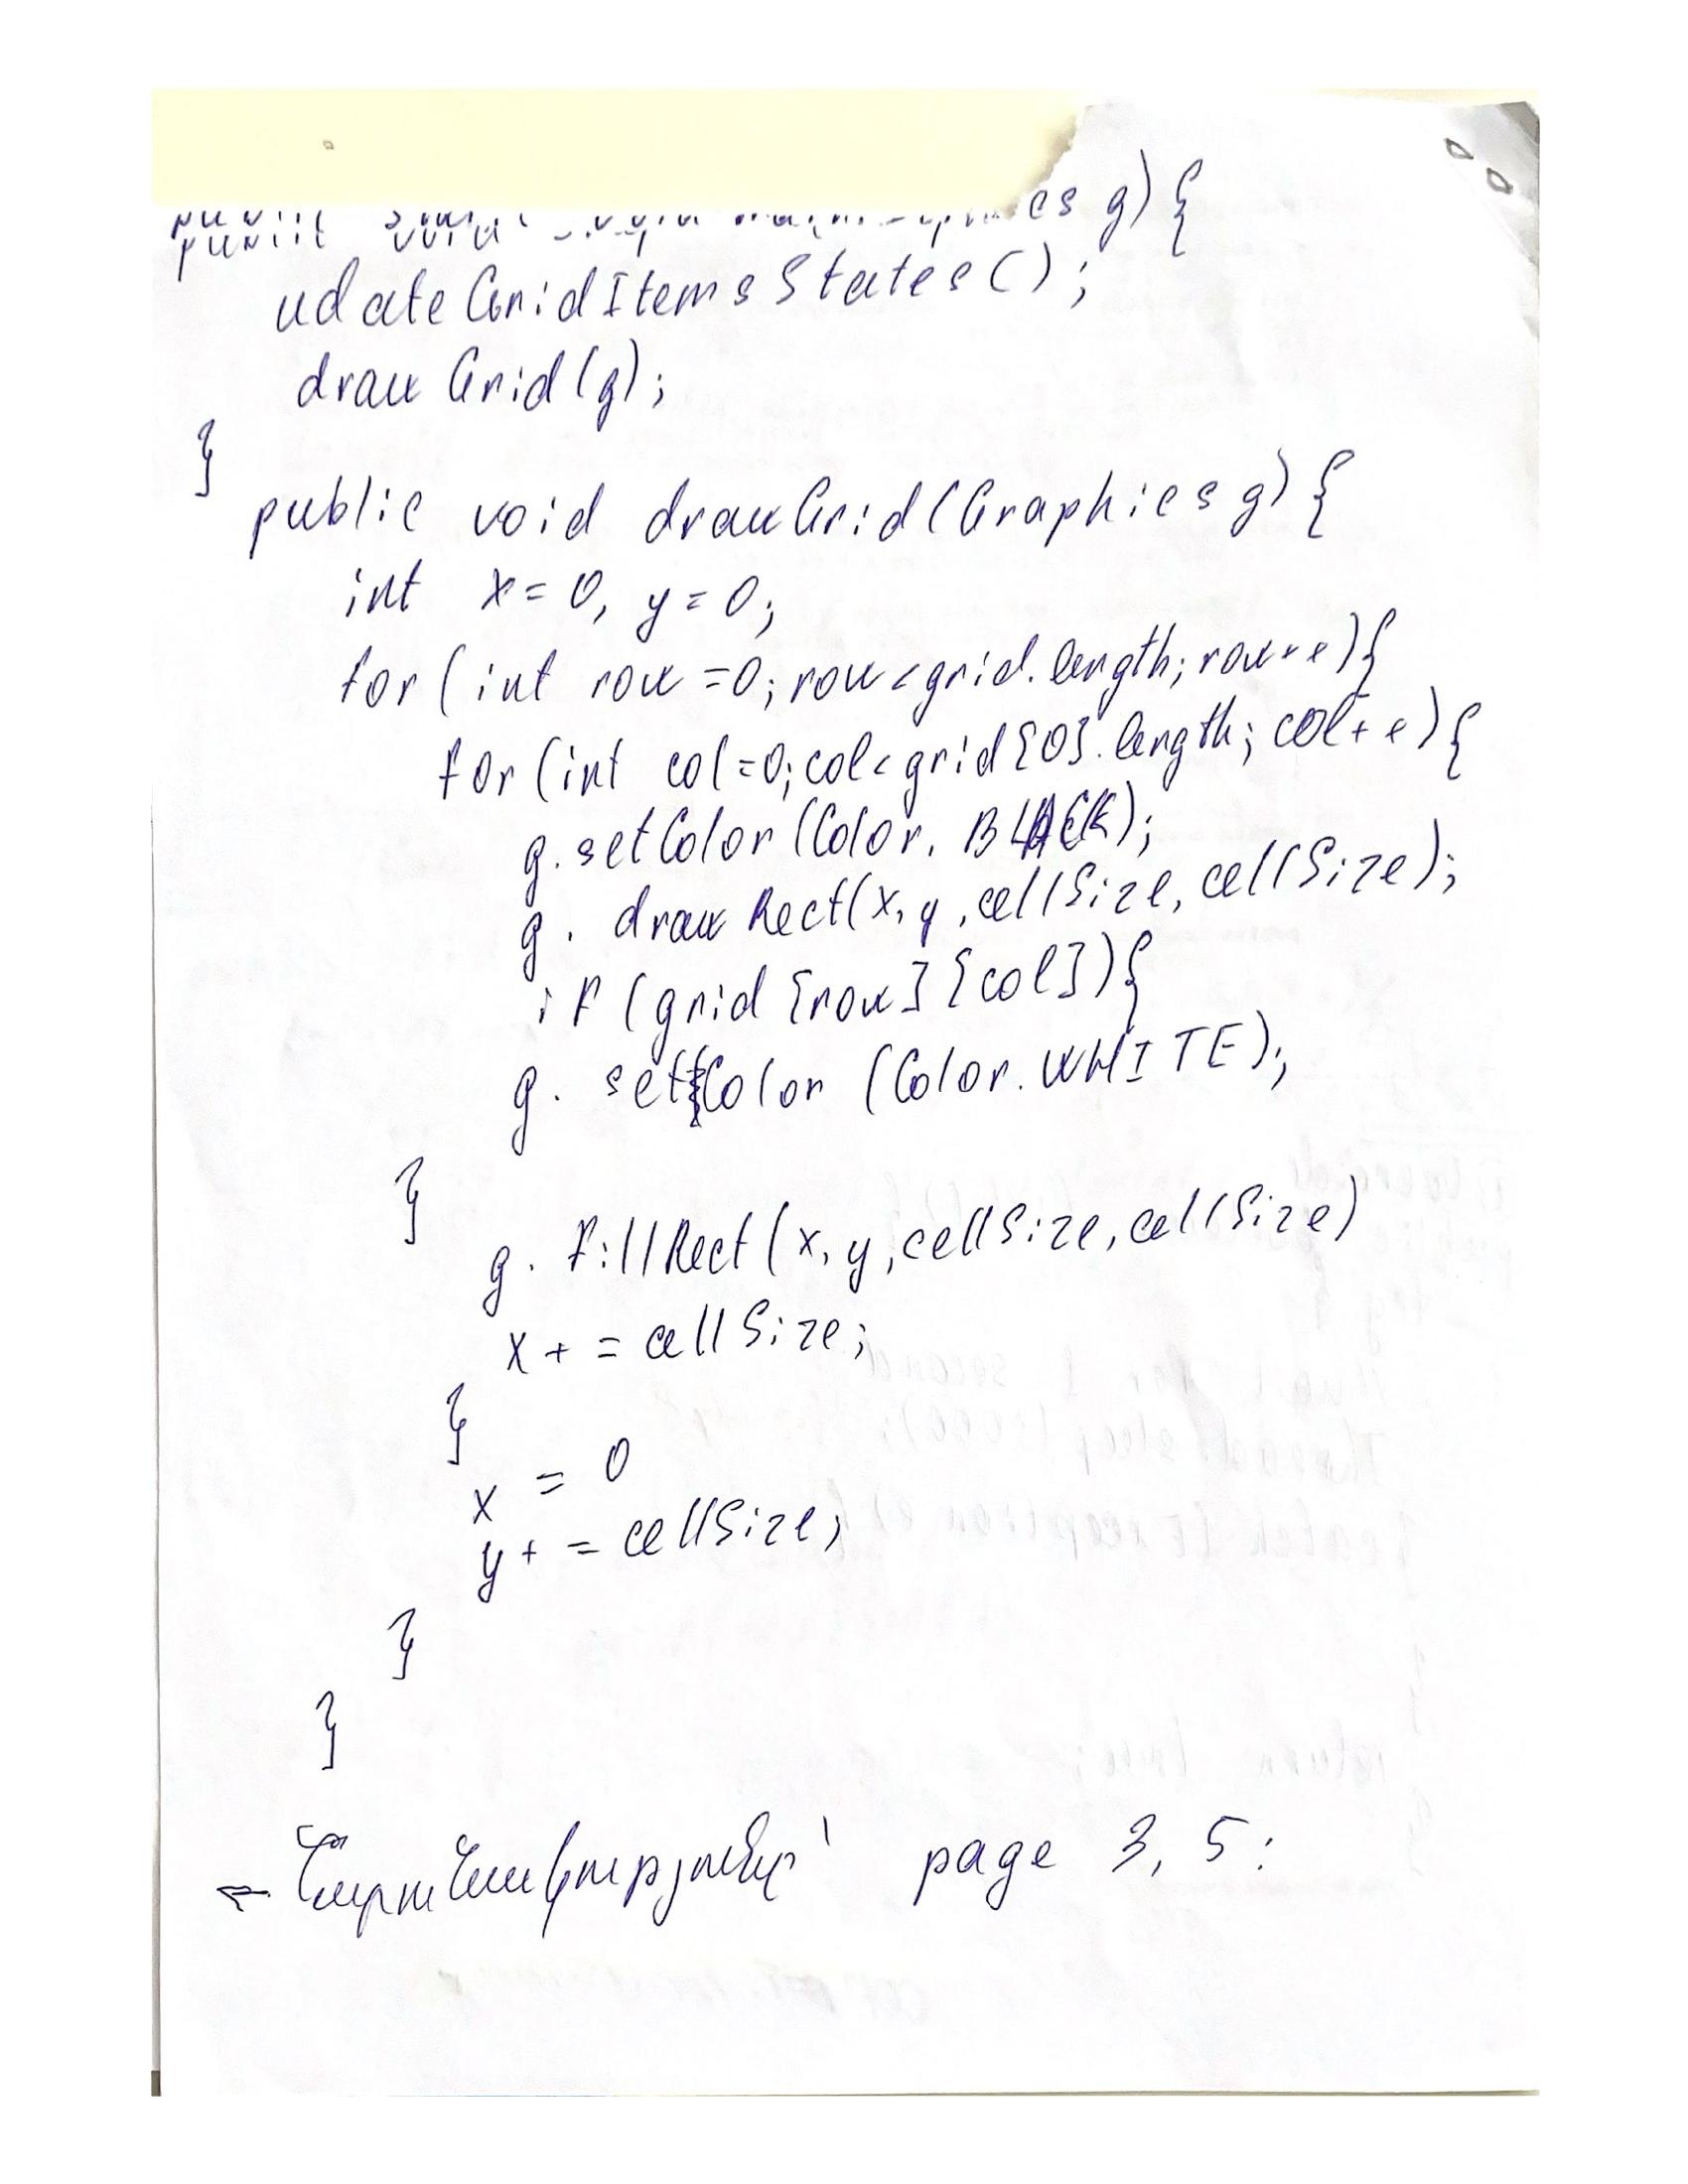 cs g) {
udateGridItemsStates();
draw Grid(g);
}
public void drawGrid(Graphics g) {
int x = 0, y = 0;
for (int row = 0; row < grid.length; row++) {
for (int col = 0; col < grid[0].length; col++) {
g. setColor (Color. BLACK);
g. draw Rect(x, y, cellSize, cellSize);
if (grid [row] [col]) {
g. setColor (Color. WHITE);
}
g. fillRect (x, y, cellSize, cellSize)
x + = cellSize;
}
x = 0
y + = cellSize;
}
}
page 3, 5: